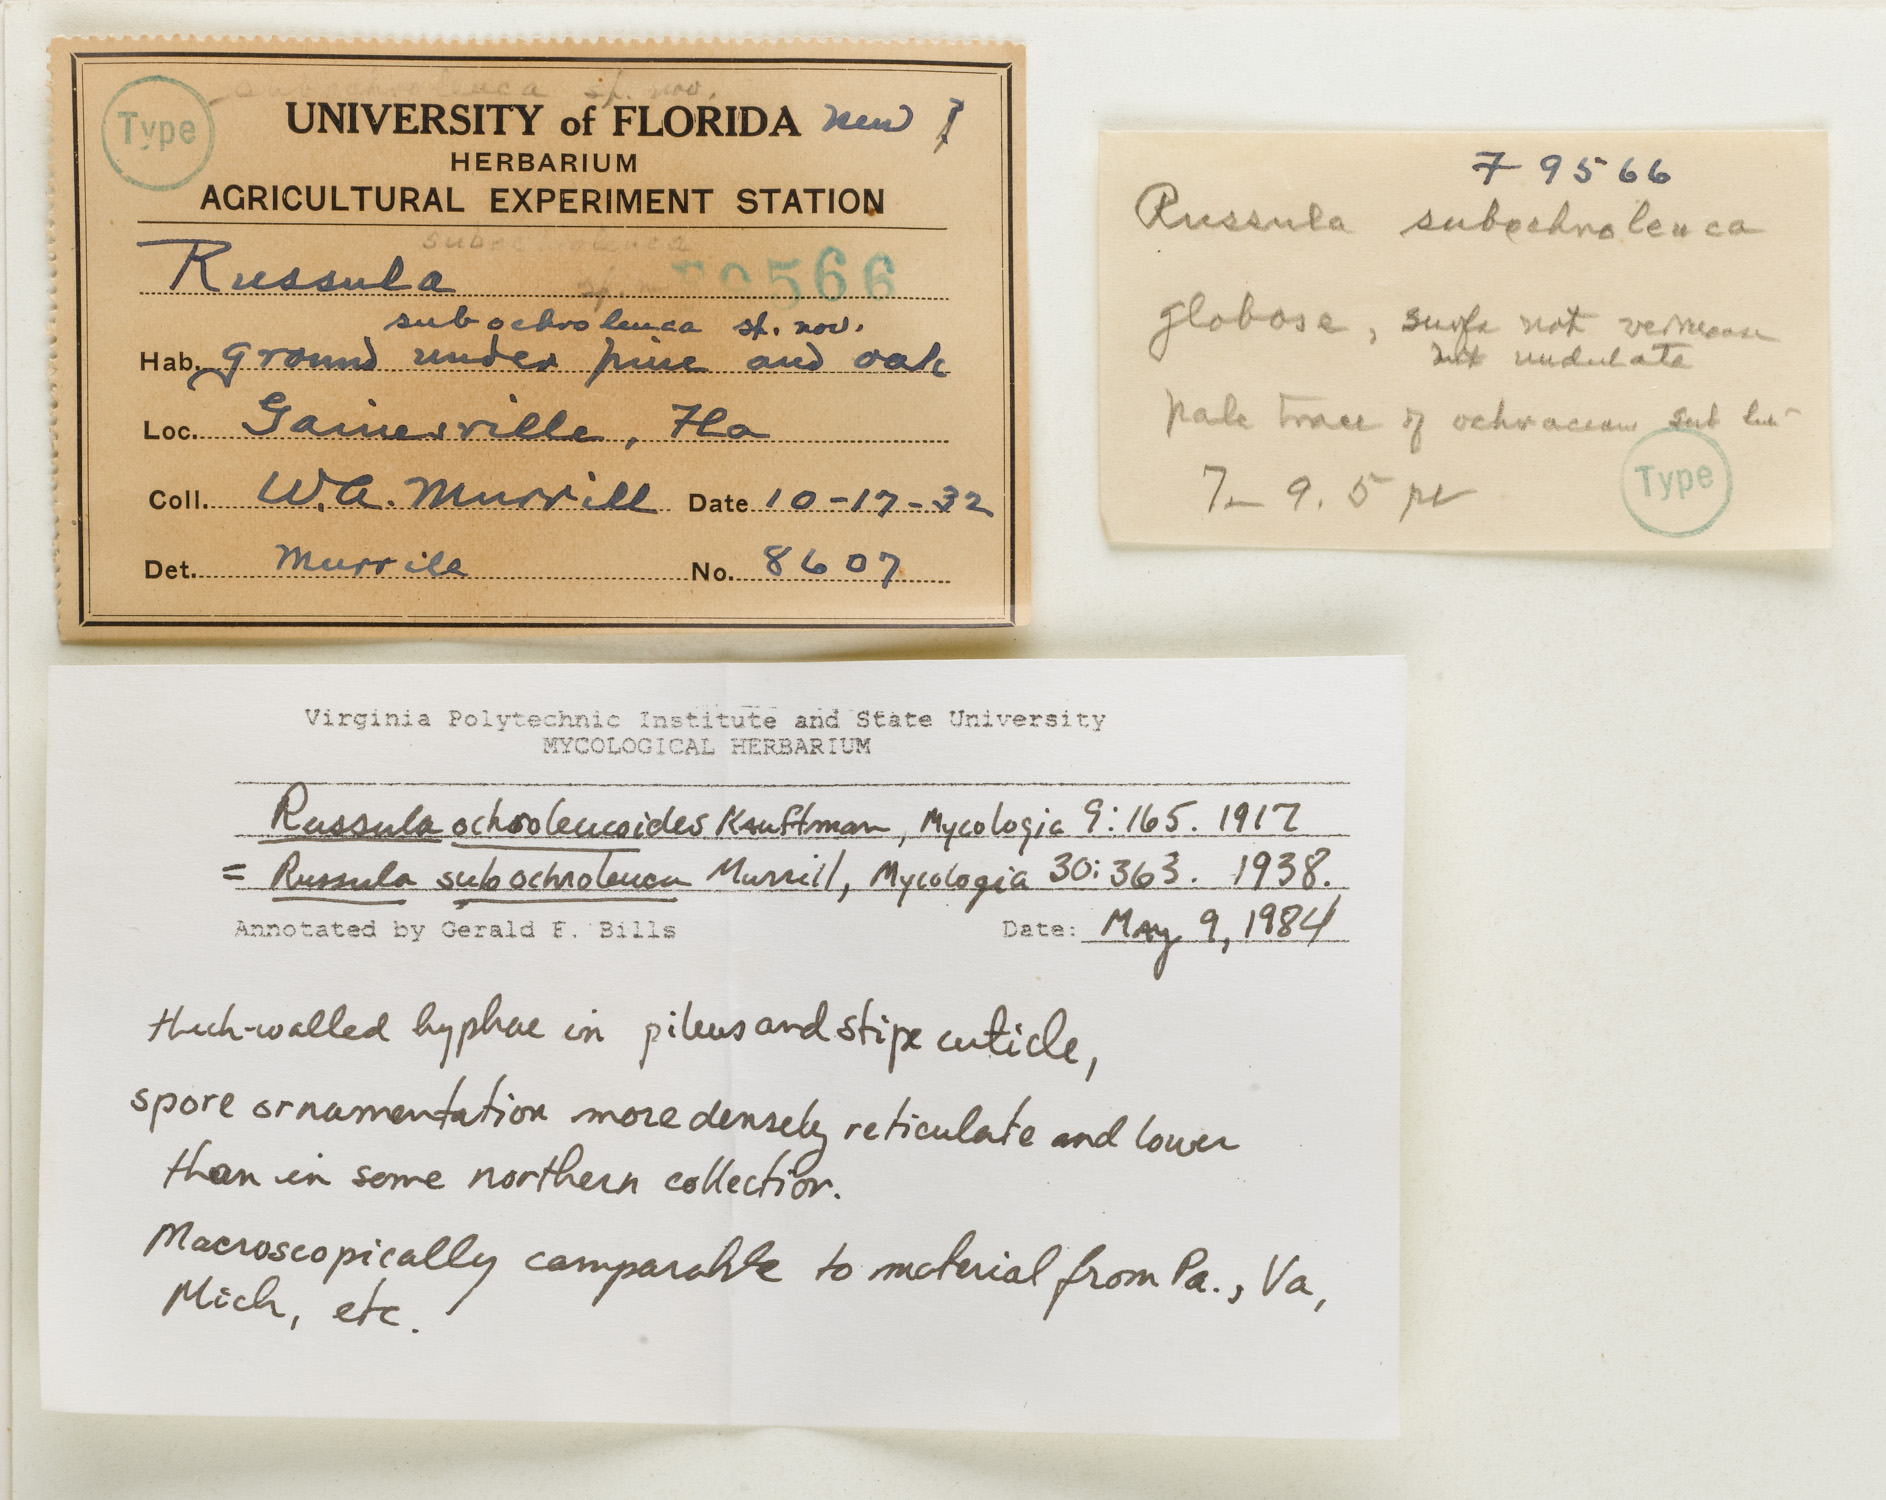 subochroleuca sp. nov.
Type
UNIVERSITY of FLORIDA new
HERBARIUM
AGRICULTURAL EXPERIMENT STATION
subochroleuca
F9566
Russula
subochroleuca sp. nov.
Hab. ground under pine and oak
Loc. Gainesville, Fla
Coll. W.A. Murrill Date 10-17-32
Det. Murrill No. 8607
F 9566
Russula subochroleuca
globose, surfa not verrucose
but undulate
pale trace of ochraceous
Type
Virginia Polytechnic Institute and State University
MYCOLOGICAL HERBARIUM
Russula ochroleucoides Kauffman, Mycologia 9:165. 1917
= Russula subochroleuca Murrill, Mycologia 30:363. 1938.
Annotated by Gerald F. Bills Date: May 9, 1984
thick-walled hyphae in pileus and stipe cuticle,
spore ornamentation more densely reticulate and lower
than in some northern collection.
Macroscopically comparable to material from Pa., Va,
Mich, etc.